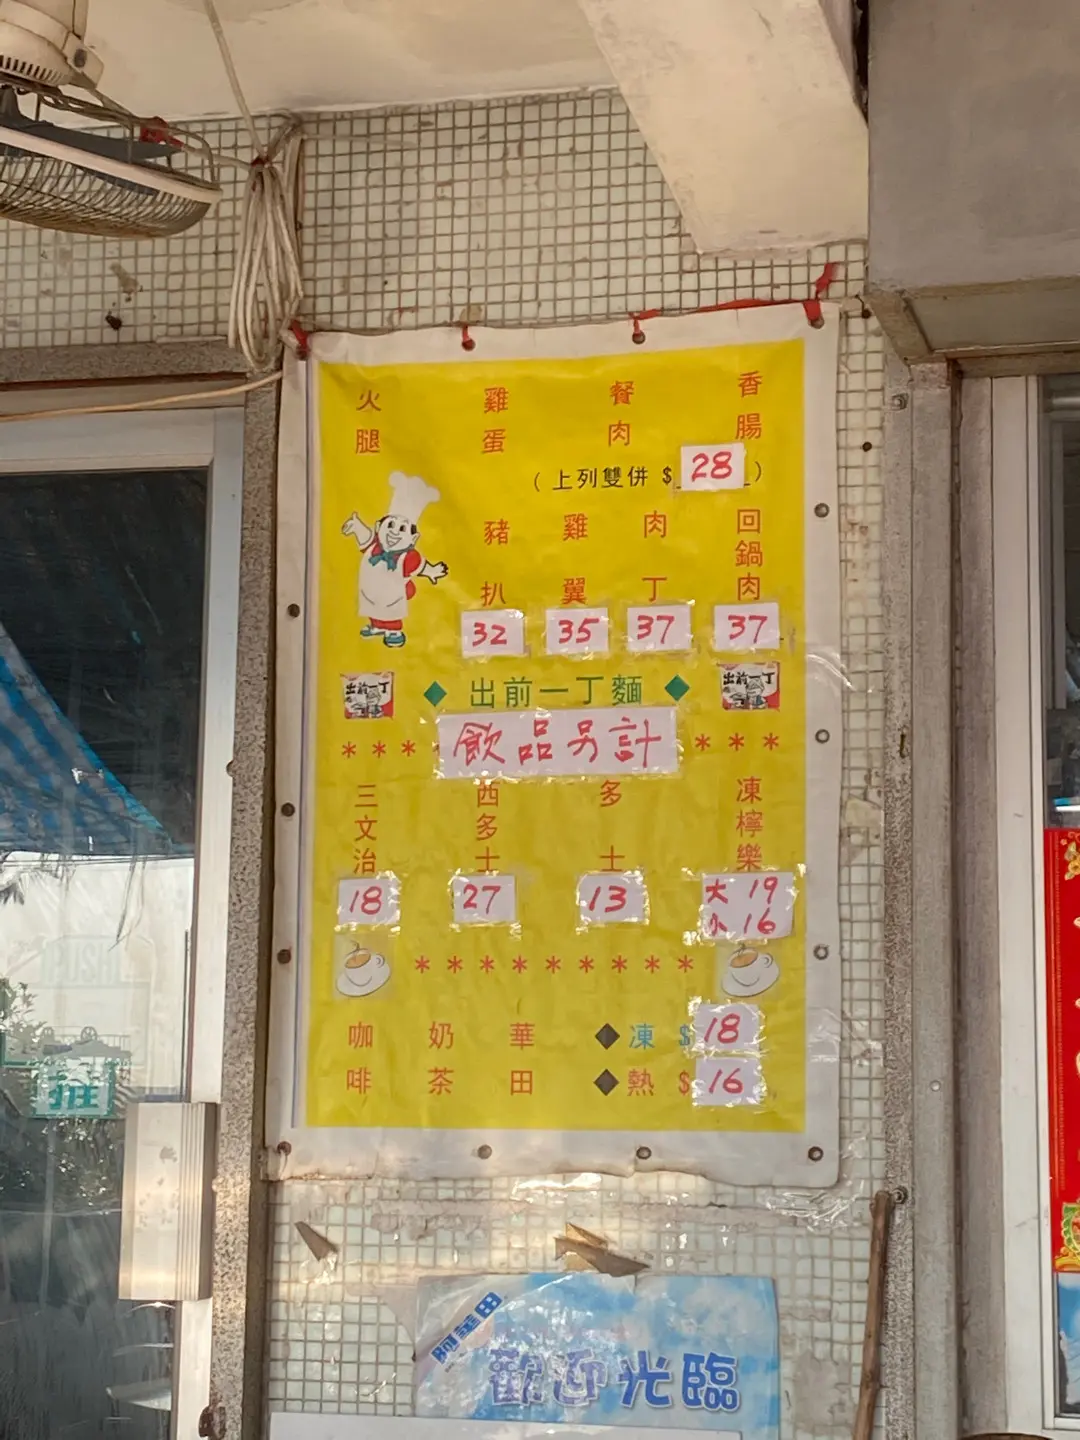 火腿 雞蛋 餐肉 香腸
(上列雙併 $ 28 )
豬扒 雞翼 肉丁 回鍋肉
32 35 37 37
出前一丁 ◆ 出前一丁麵 ◆ 出前一丁
*** 飲品另計 ***
三文治 西多士 多士 凍檸樂
18 27 13 大 19
小 16
*********
咖啡 奶茶 華田 ◆ 凍 $ 18
◆ 熱 $ 16
阿華田
歡迎光臨